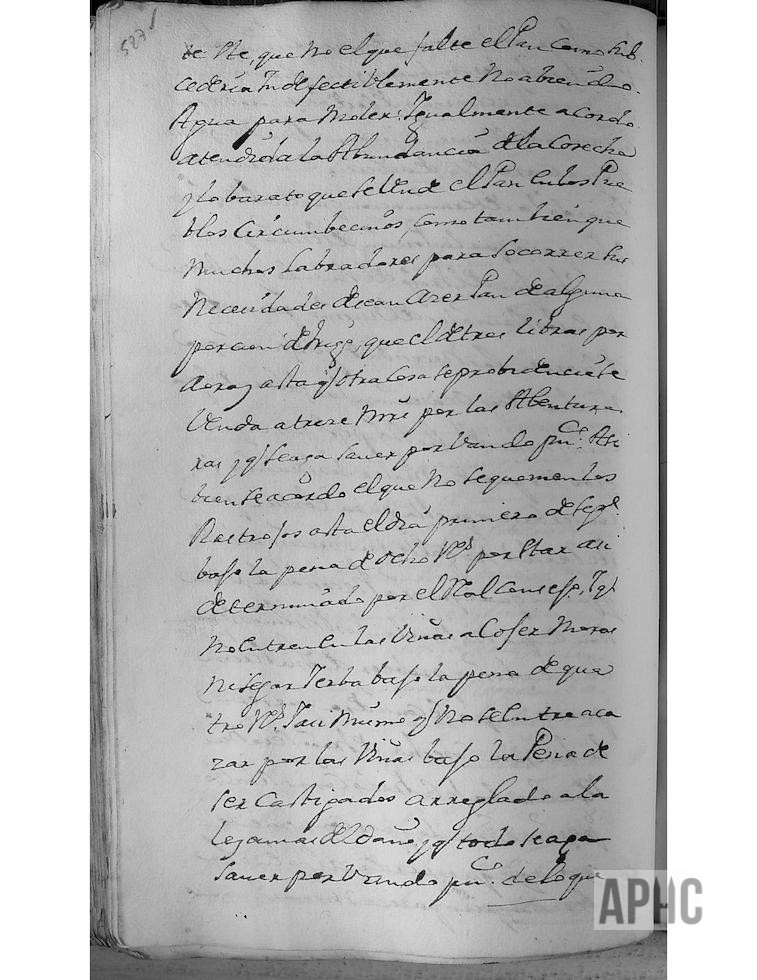 527
te Ste, que no el que falte el Pan como sub
cederia Indefectiblemente No abiendo
Agua para Moler: Igualmente acordo
atendida la Abundancia de la Cosecha
y lo barato que se Vende el Pan en los Pue
blos Circumbecinos, como tambien que
Muchos Labradores para Socorrer sus
Necesidades desean Azer Pan de alguna
porcion de trigo, que el de tres libras por
aora y asta q otra Cosa se probidencie se
Venda a treze Mrs por las Abenture
ras, y q se aga Saver por Vando puco. Asi
bien se acordo el que No se quemen los
Rastrojos asta el dia primero de Sepe
bajo la pena de ocho Rs por Star asi
determinado por el Real Consejo, Y q
No Entren en las Viñas a Cojer Moras
Ni Segar Yerba bajo la pena de qua
tro Rs. Y asi Mismo q No se Entre a ca
zar por las Viñas bajo la Pena de
ser Castigados arreglado a la
Ley a mas del daño, y q todo se aga
Saver por Vando puco. de lo que
APHC